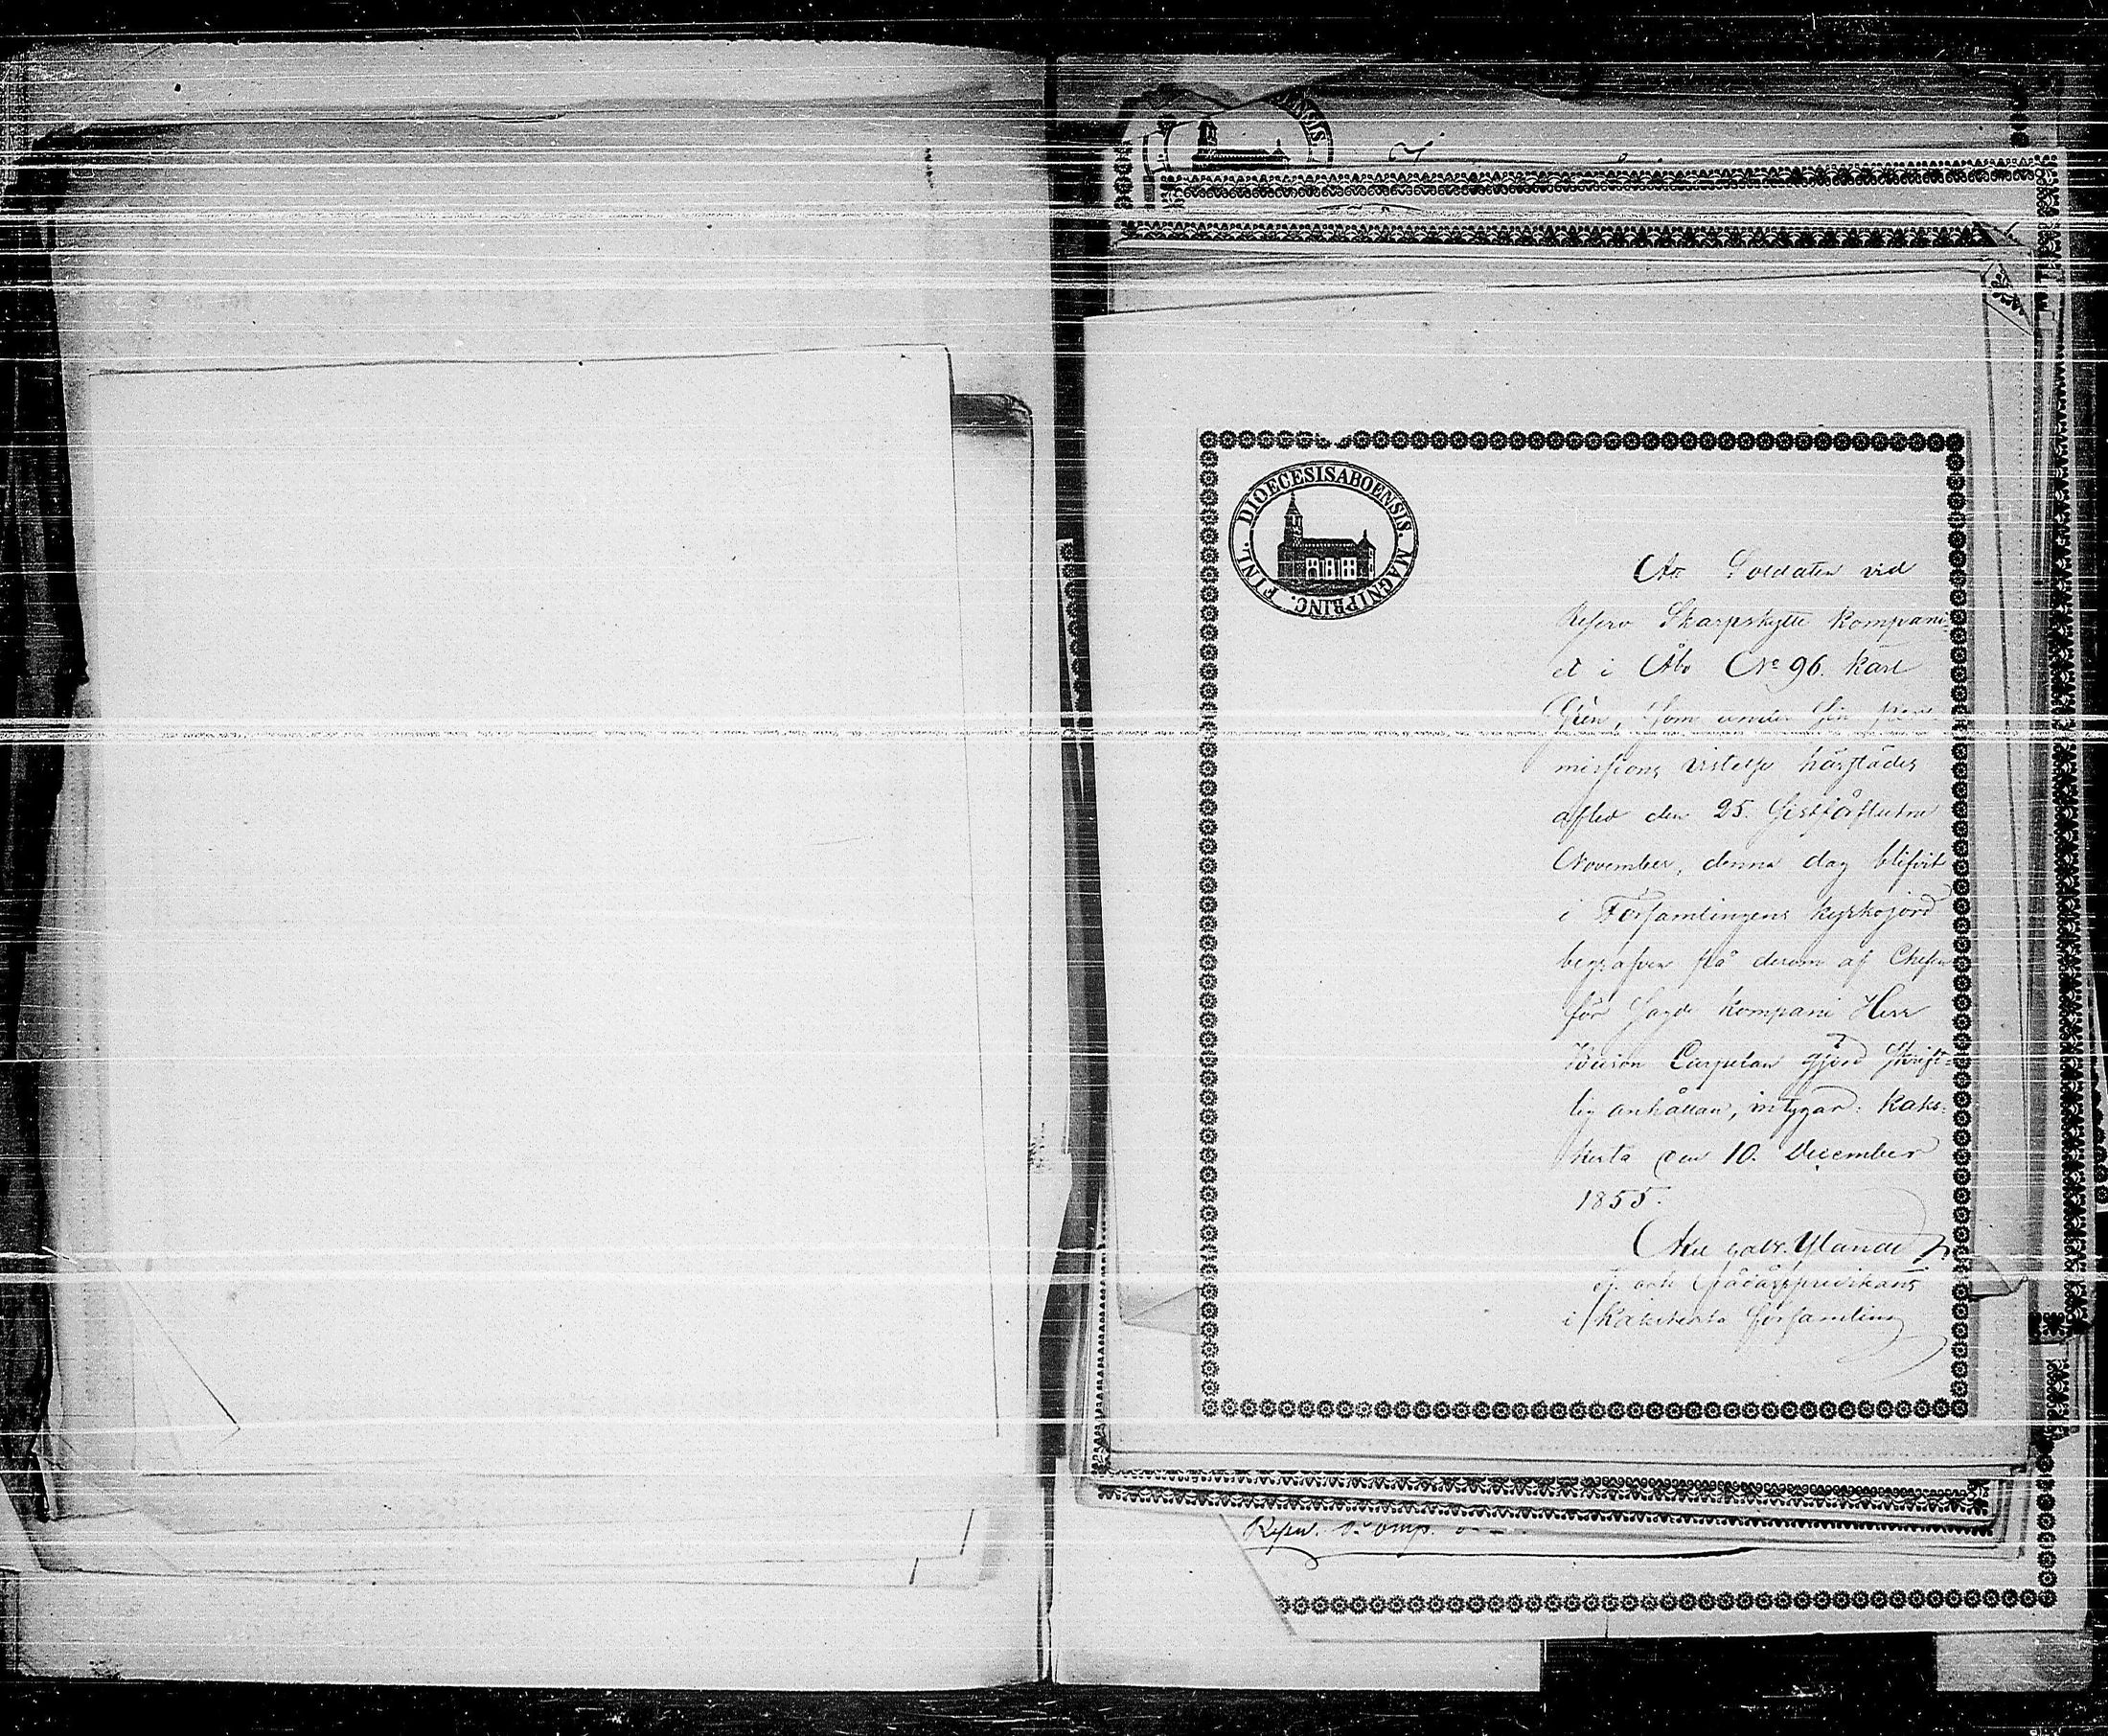 DIOECESIS ABOENSIS. MAGNI PRINC. FINL.
Att Soldaten vid
Reserv Skarpskytte Kompani-
et i Åbo No 96. Karl
som under sin per-
missions vistelse härstädes
afled den 25. sistförflutne
November, denna dag blifvit
i Församlingens kyrkojord
begrafven på derom af Chefen
för sagde Kompani Herr
Carpelan gjord skrift-
lig anhållan, intygar: Kaks-
kerta den 10. December
1855.
Gabr.
och
i Kakskerta församling
Reserv. Komp.